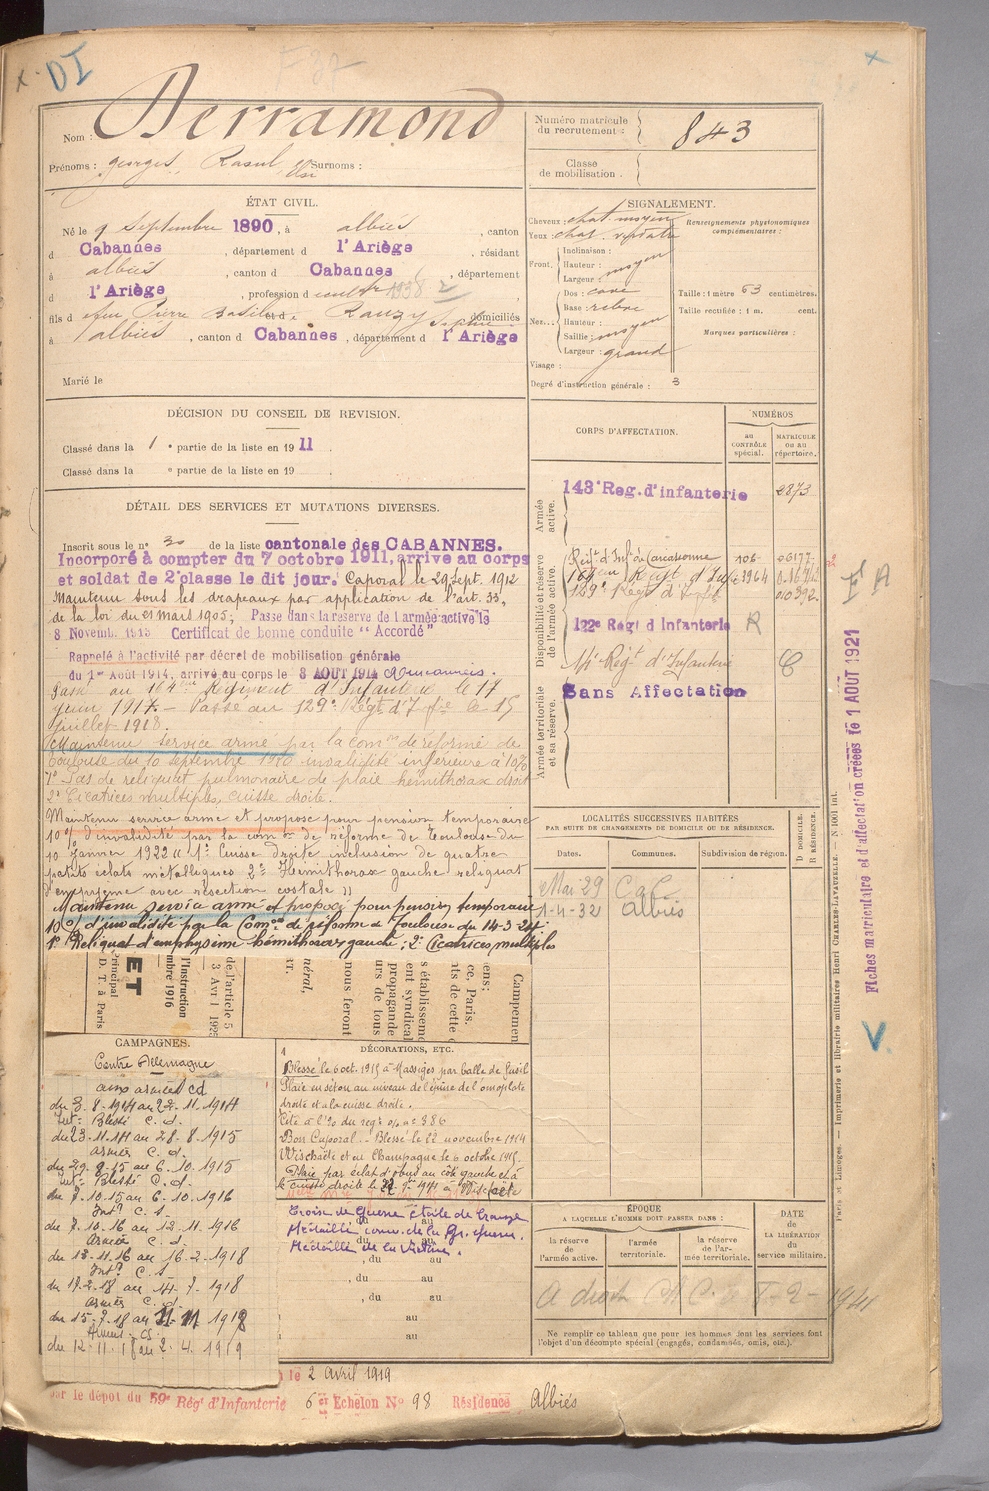 DI
F 37
Nom : Derramond
Prénoms : georges, Raoul Surnoms :
Numéro matricule du recrutement : 843
Classe de mobilisation :
ÉTAT CIVIL.
Né le 9 Septembre 1890, à albiès, canton
d Cabannes, département d l'Ariège, résidant
à albiès, canton d Cabannes, département
d l'Ariège, profession d
fils d Pierre Basile et d Rauzy Sophie domiciliés
à albiès, canton d Cabannes, département d l'Ariège
Marié le
SIGNALEMENT.
Cheveux : chat. moyen
Yeux :
Renseignements physionomiques complémentaires :
Front. Inclinaison :
Hauteur : moyen
Largeur :
Nez. Dos : cave
Base : relevé
Hauteur :
Saillie : moyen
Largeur : grand
Visage :
Taille : 1 mètre 63 centimètres.
Taille rectifiée : 1 m. cent.
Marques particulières :
Degré d'instruction générale : 3
DÉCISION DU CONSEIL DE REVISION.
Classé dans la 1 e partie de la liste en 19 11.
Classé dans la e partie de la liste en 19 .
DÉTAIL DES SERVICES ET MUTATIONS DIVERSES.
Inscrit sous le n° 30 de la liste cantonale des CABANNES.
Incorporé à compter du 7 octobre 1911, arrivé au corps
et soldat de 2e classe le dit jour. Caporal le 29 Sept. 1912
Maintenu sous les drapeaux par application de l'art. 33,
de la loi du 21 Mars 1905; Passé dans la réserve de l'armée active le
8 Novemb. 1913 Certificat de bonne conduite "Accordé"
Rappelé à l'activité par décret de mobilisation générale
du 1er Aout 1914, arrivé au corps le 3 AOUT 1914
Passé au 164me Régiment d'Infanterie le 17
juin 1917. — Passé au 129e Régt d'Infie le 15
juillet 1918.
Maintenu service armé par la comon de réforme de
Toulouse du 10 septembre 1920 invalidité inférieure à 10%
1° Pas de reliquat pulmonaire de plaie hémithorax droit
2° Cicatrices multiples, cuisse droite.
Maintenu service armé et proposé pour pension temporaire
10% d'invalidité par la comon de réforme de Toulouse du
10 Janvier 1922 " 1° Cuisse droite inclusion de quatre
petits éclats métalliques 2° Hémithorax gauche reliquat
d'empyème avec résection costale "
Maintenu service armé et proposé pour pension temporaire
10% d'invalidité par la Comon de réforme de Toulouse du 14-3-24.
1° Reliquat d'emphysème hémithorax gauche; 2° Cicatrices multiples
CORPS D'AFFECTATION.
NUMÉROS
au CONTRÔLE spécial.
MATRICULE OU AU répertoire.
Armée active.
143e Reg. d'infanterie 2873
Disponibilité et réserve de l'armée active.
Régt d'Infie de Carcassonne 106 06177
164em Régt d'Inf
129e Régt d'Infie 010392.
122e Régt d Infanterie R
14e Régt d'Infanterie C
Armée territoriale et sa réserve.
Sans Affectation
LOCALITÉS SUCCESSIVES HABITÉES
PAR SUITE DE CHANGEMENTS DE DOMICILE OU DE RÉSIDENCE.
Dates. Communes. Subdivision de région. D DOMICILE. R RÉSIDENCE.
Mai 29
1-4-32 Albiès
Fiches matriculaire et d'affectation créées le 1 AOUT 1921
V.
Paris et Limoges. — Imprimerie et librairie militaires Henri CHARLES-LAVAUZELLE. — N° 1001 int.
CAMPAGNES.
Contre Allemagne
aux armées cd
du 3-8-1914 au 22-11-1914
Intr: Blessé C. d.
du 23-11-14 au 28-8-1915
Armées C. d.
du 29-8-15 au 6-10-1915
Intr: Blessé C. d.
du 7-10-15 au 6-10-1916
Intr C. S.
du 7-10-16 au 12-11-1916
Armée C. d.
du 13-11-16 au 16-2-1918
Intr C. S.
du 17-2-18 au 14-7-1918
Armées C. d.
du 15-7-18 au 11-11-1918
Armées CS.
du 12-11-18 au 2-4-1919
DÉCORATIONS, ETC.
Blessé le 6 oct. 1915 à Massiges par balle de fusil
Plaie en séton au niveau de l'épine de l'omoplate
droite et à la cuisse droite.
Cité à l'O du régt o/o n° 386
Bon Caporal. Blessé le 22 novembre 1914
Wischaete et en Champagne le 6 octobre 1915.
Plaie par éclat d'obus au côté gauche et à
Croix de Guerre étoile de bronze
Médaille com. de la Gr. guerre.
Médaille de la Victoire.
, du au
, du au
, du au
au
au
ÉPOQUE
A LAQUELLE L'HOMME DOIT PASSER DANS :
la réserve de l'armée active.
l'armée territoriale.
la réserve de l'armée territoriale.
DATE de LA LIBÉRATION du service militaire.
A droit
Ne remplir ce tableau que pour les hommes dont les services font
l'objet d'un décompte spécial (engagés, condamnés, omis, etc.).
le 2 avril 1919
par le dépôt du 59e Régt d'Infanterie 6 Echelon N° 98 Résidence Albiès